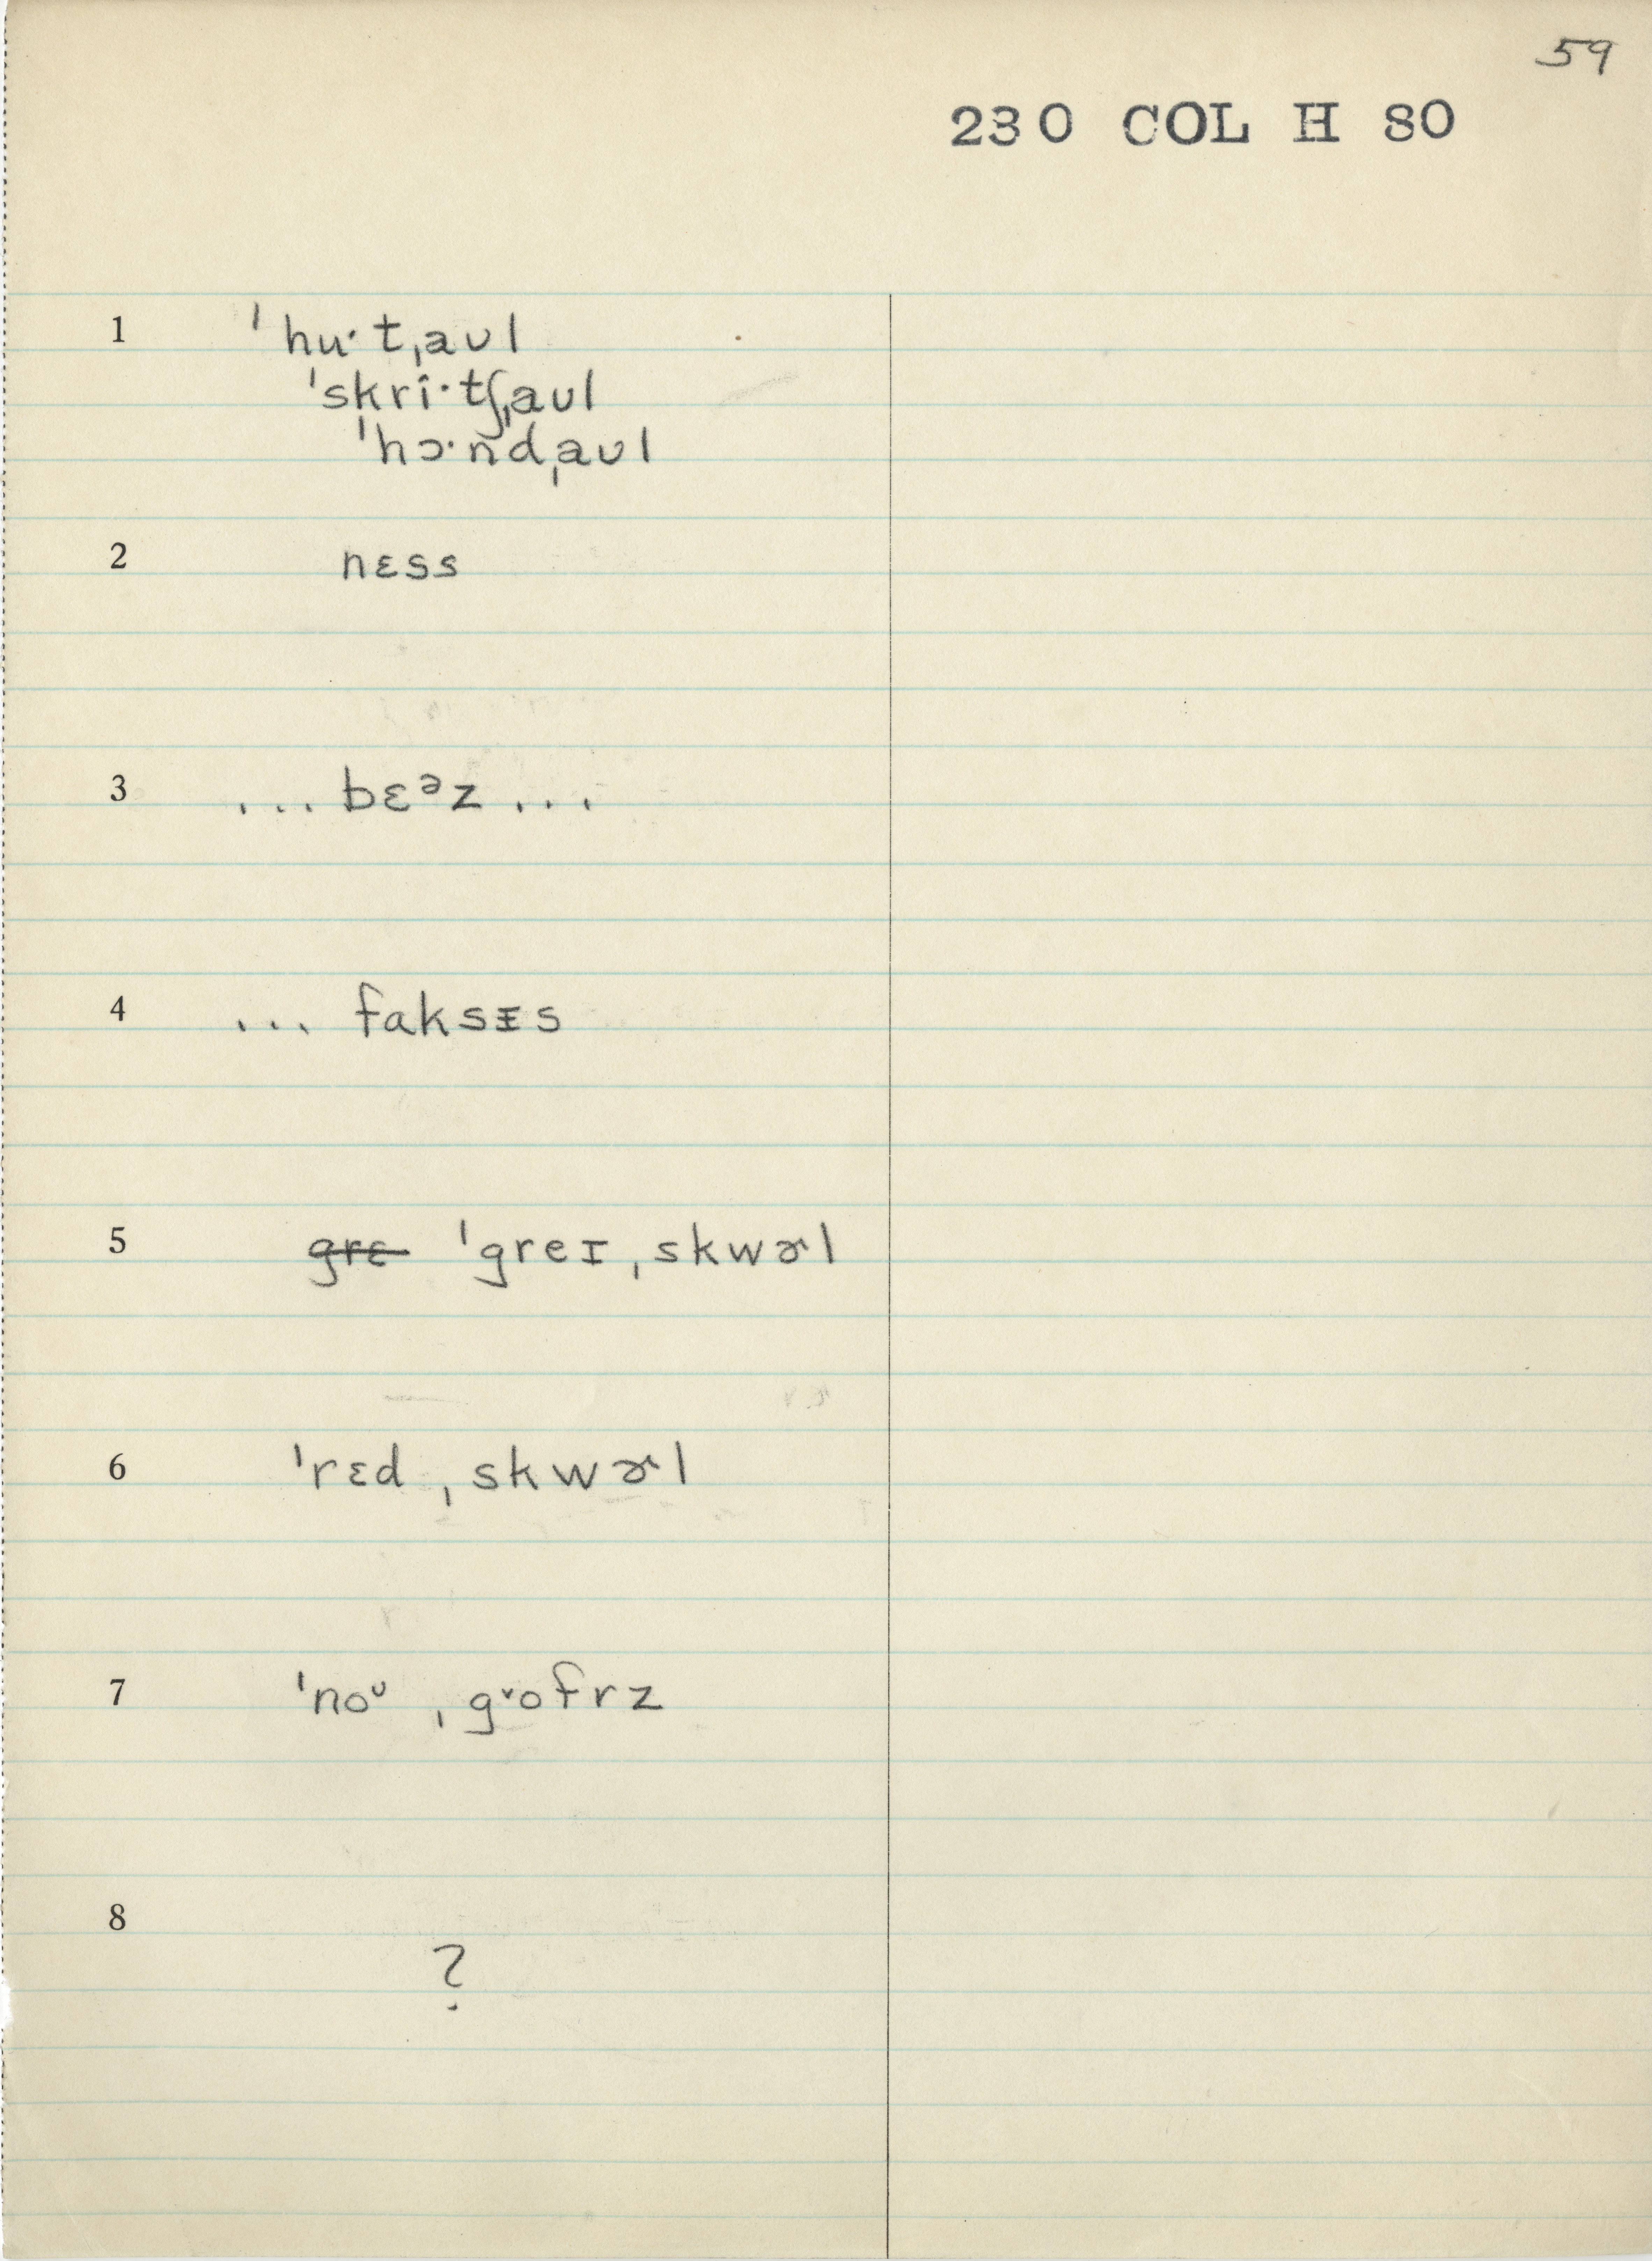 59
230 COL H 80
1 ˈhu·tˌaʊl
ˈskri·tʃˌaʊl
ˈhɔ·ndˌaʊl
2 nɛss
3 ... bɛᵊz ...
4 ... faksɪs
5 grɛ ˈgreɪˌskwɚl
6 ˈrɛdˌskwɚl
7 ˈnoᶷ ˌgᵛofrz
8 ?